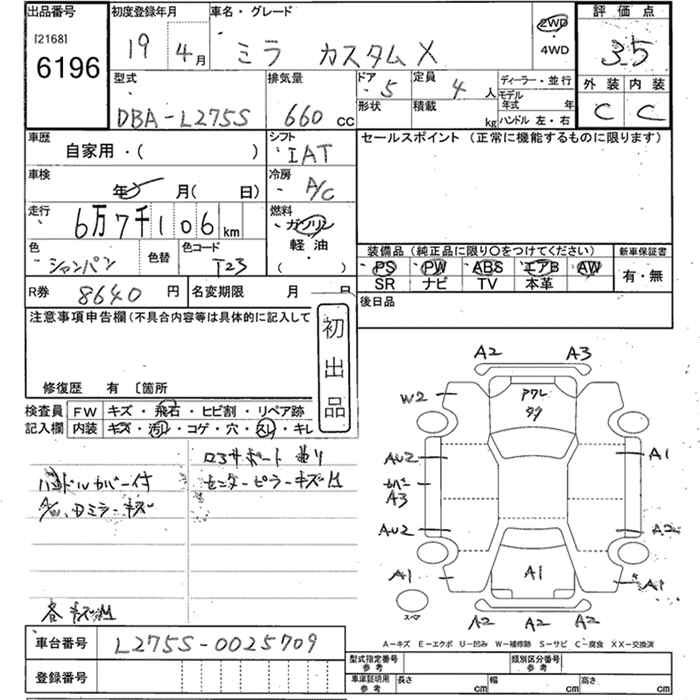 出品番号
[2168]
6196
初度登録年月
19年 4月
車名・グレード
ミラ カスタムX
2WD
4WD
評価点
3.5
外装 内装
C C
型式
DBA-L275S
排気量
660 cc
ドア
5
定員
4 人
形状
積載
kg
ディーラー・並行
モデル年式 年
ハンドル 左・右
車歴
自家用・( )
シフト
IAT
セールスポイント (正常に機能するものに限ります)
車検
年 月( 日)
冷房
A/C
走行
6万7千106 km
燃料
ガソリン
軽油
( ・ )
色
シャンパン
色替
色コード
T23
装備品(純正品に限り〇をつけてください)
新車保証書
PS PW ABS エアB AW
SR ナビ TV 本革
有・無
R券 8640 円
名変期限 月 日
後日品
注意事項申告欄(不具合内容等は具体的に記入して
初出品
修復歴 有 〔箇所
検査員記入欄
FW キズ・飛石・ヒビ割・リペア跡
内装 キズ・汚れ・コゲ・穴・スレ・キレ
ハンドルカバー付
センターピラーキズ
ミラーキズ
A2 A3
W2
AU2
A3
AU2
A1
A1
A2
A1
A1
A2 A2 A2
スペア
A-キズ E-エクボ U-凹み W-補修跡 S-サビ C-腐食 XX-交換済
車台番号 L275S-0025709
登録番号
型式指定番号 参考
類別区分番号 参考
車庫証明用 参考
長さ cm 幅 cm 高さ cm